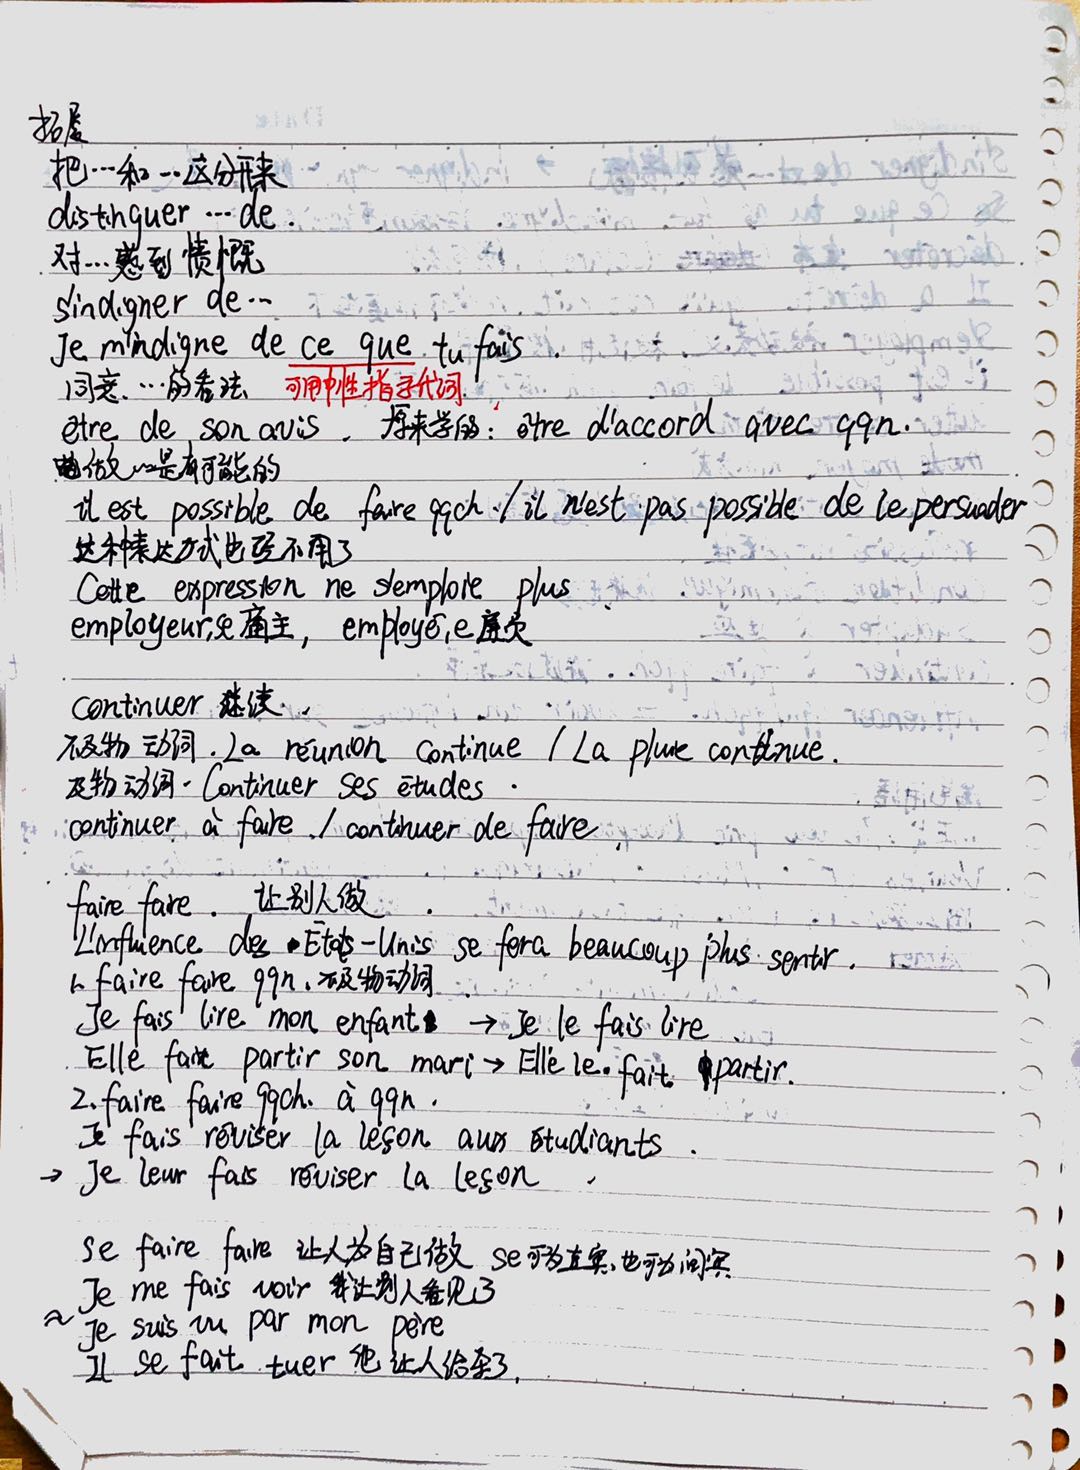 拓展
把…和…区分开来
distinguer … de.
对…感到愤慨
s'indigner de…
Je m'indigne de ce que tu fais.
同意…的看法 可用中性指示代词
être de son avis. 原来学的: être d'accord avec qqn.
做…是有可能的
il est possible de faire qqch / il n'est pas possible de le persuader
这种表达方式已经不用了
Cette expression ne s'emploie plus
employeur,se 雇主, employé,e 雇员
continuer 继续.
不及物动词. La réunion continue / La pluie continue.
及物动词. Continuer ses études.
continuer à faire / continuer de faire
faire faire. 让别人做.
L'influence des États-Unis se fera beaucoup plus sentir.
1. faire faire qqn. 不及物动词
Je fais lire mon enfant → Je le fais lire
Elle fait partir son mari → Elle le fait partir.
2. faire faire qqch. à qqn.
Je fais réviser la leçon aux étudiants.
→ Je leur fais réviser la leçon
se faire faire 让人为自己做 se可为直宾,也可为间宾
Je me fais voir 我让别人看见了
≈ Je suis vu par mon père
Il se fait tuer 他让人给杀了.